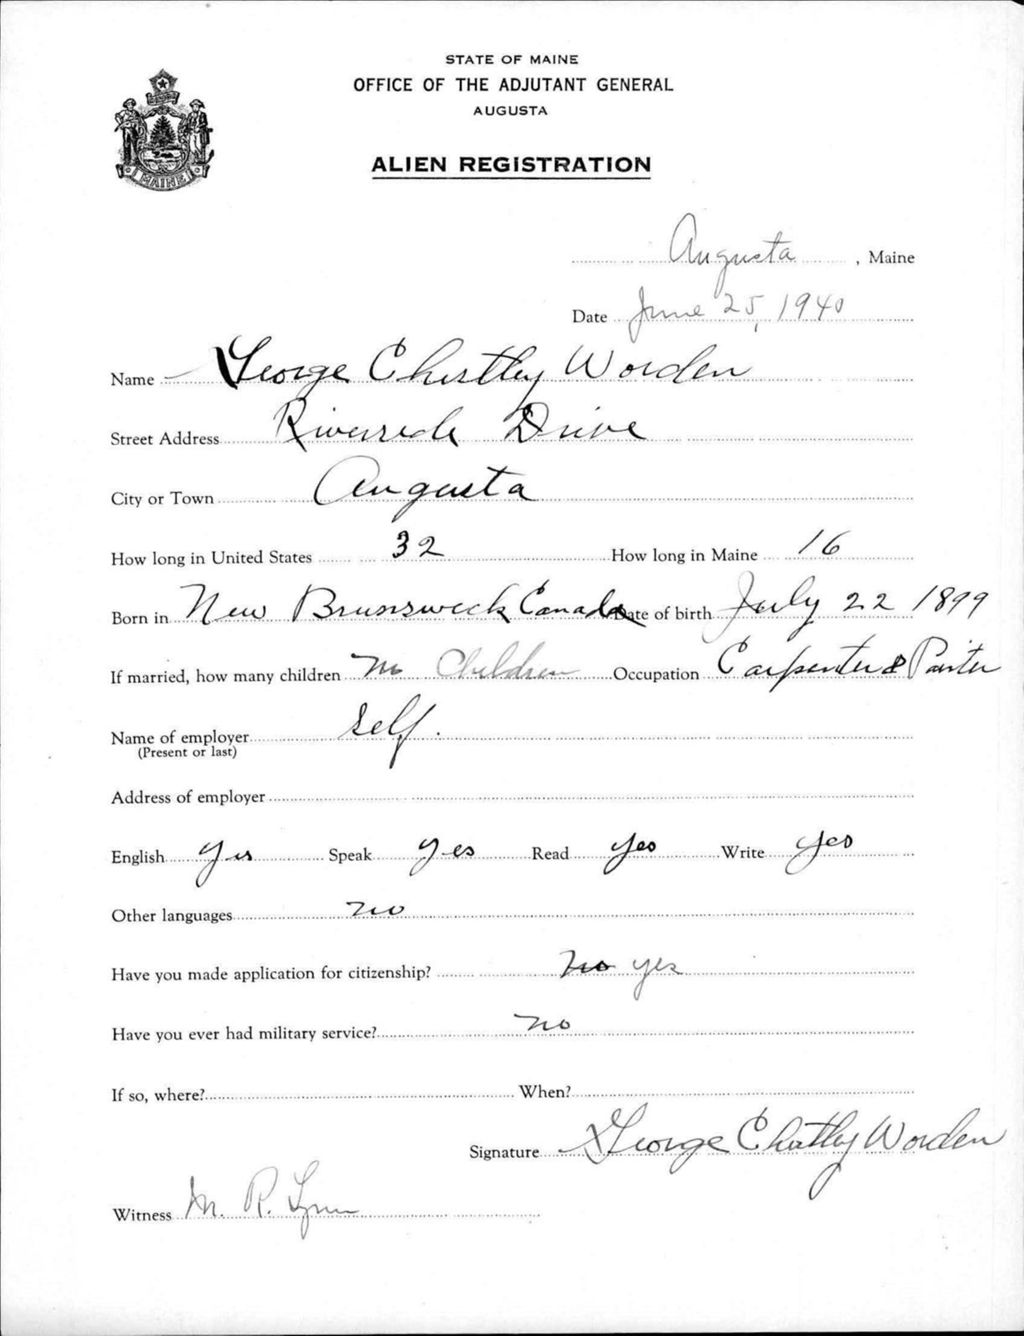 STATE OF MAINE
OFFICE OF THE ADJUTANT GENERAL
AUGUSTA
MAINE
ALIEN REGISTRATION
Augusta, Maine
Date June 25, 1940
Name George Chestley Worden
Street Address Riverside Drive
City or Town Augusta
How long in United States 32 How long in Maine 16
Born in New Brunswick Canada Date of birth July 22 1899
If married, how many children no Children Occupation Carpenter & Painter
Name of employer self.
(Present or last)
Address of employer
English Yes Speak Yes Read yes Write yes
Other languages no
Have you made application for citizenship? no yes
Have you ever had military service? no
If so, where? When?
Signature George Chestley Worden
Witness M. R. Lynn